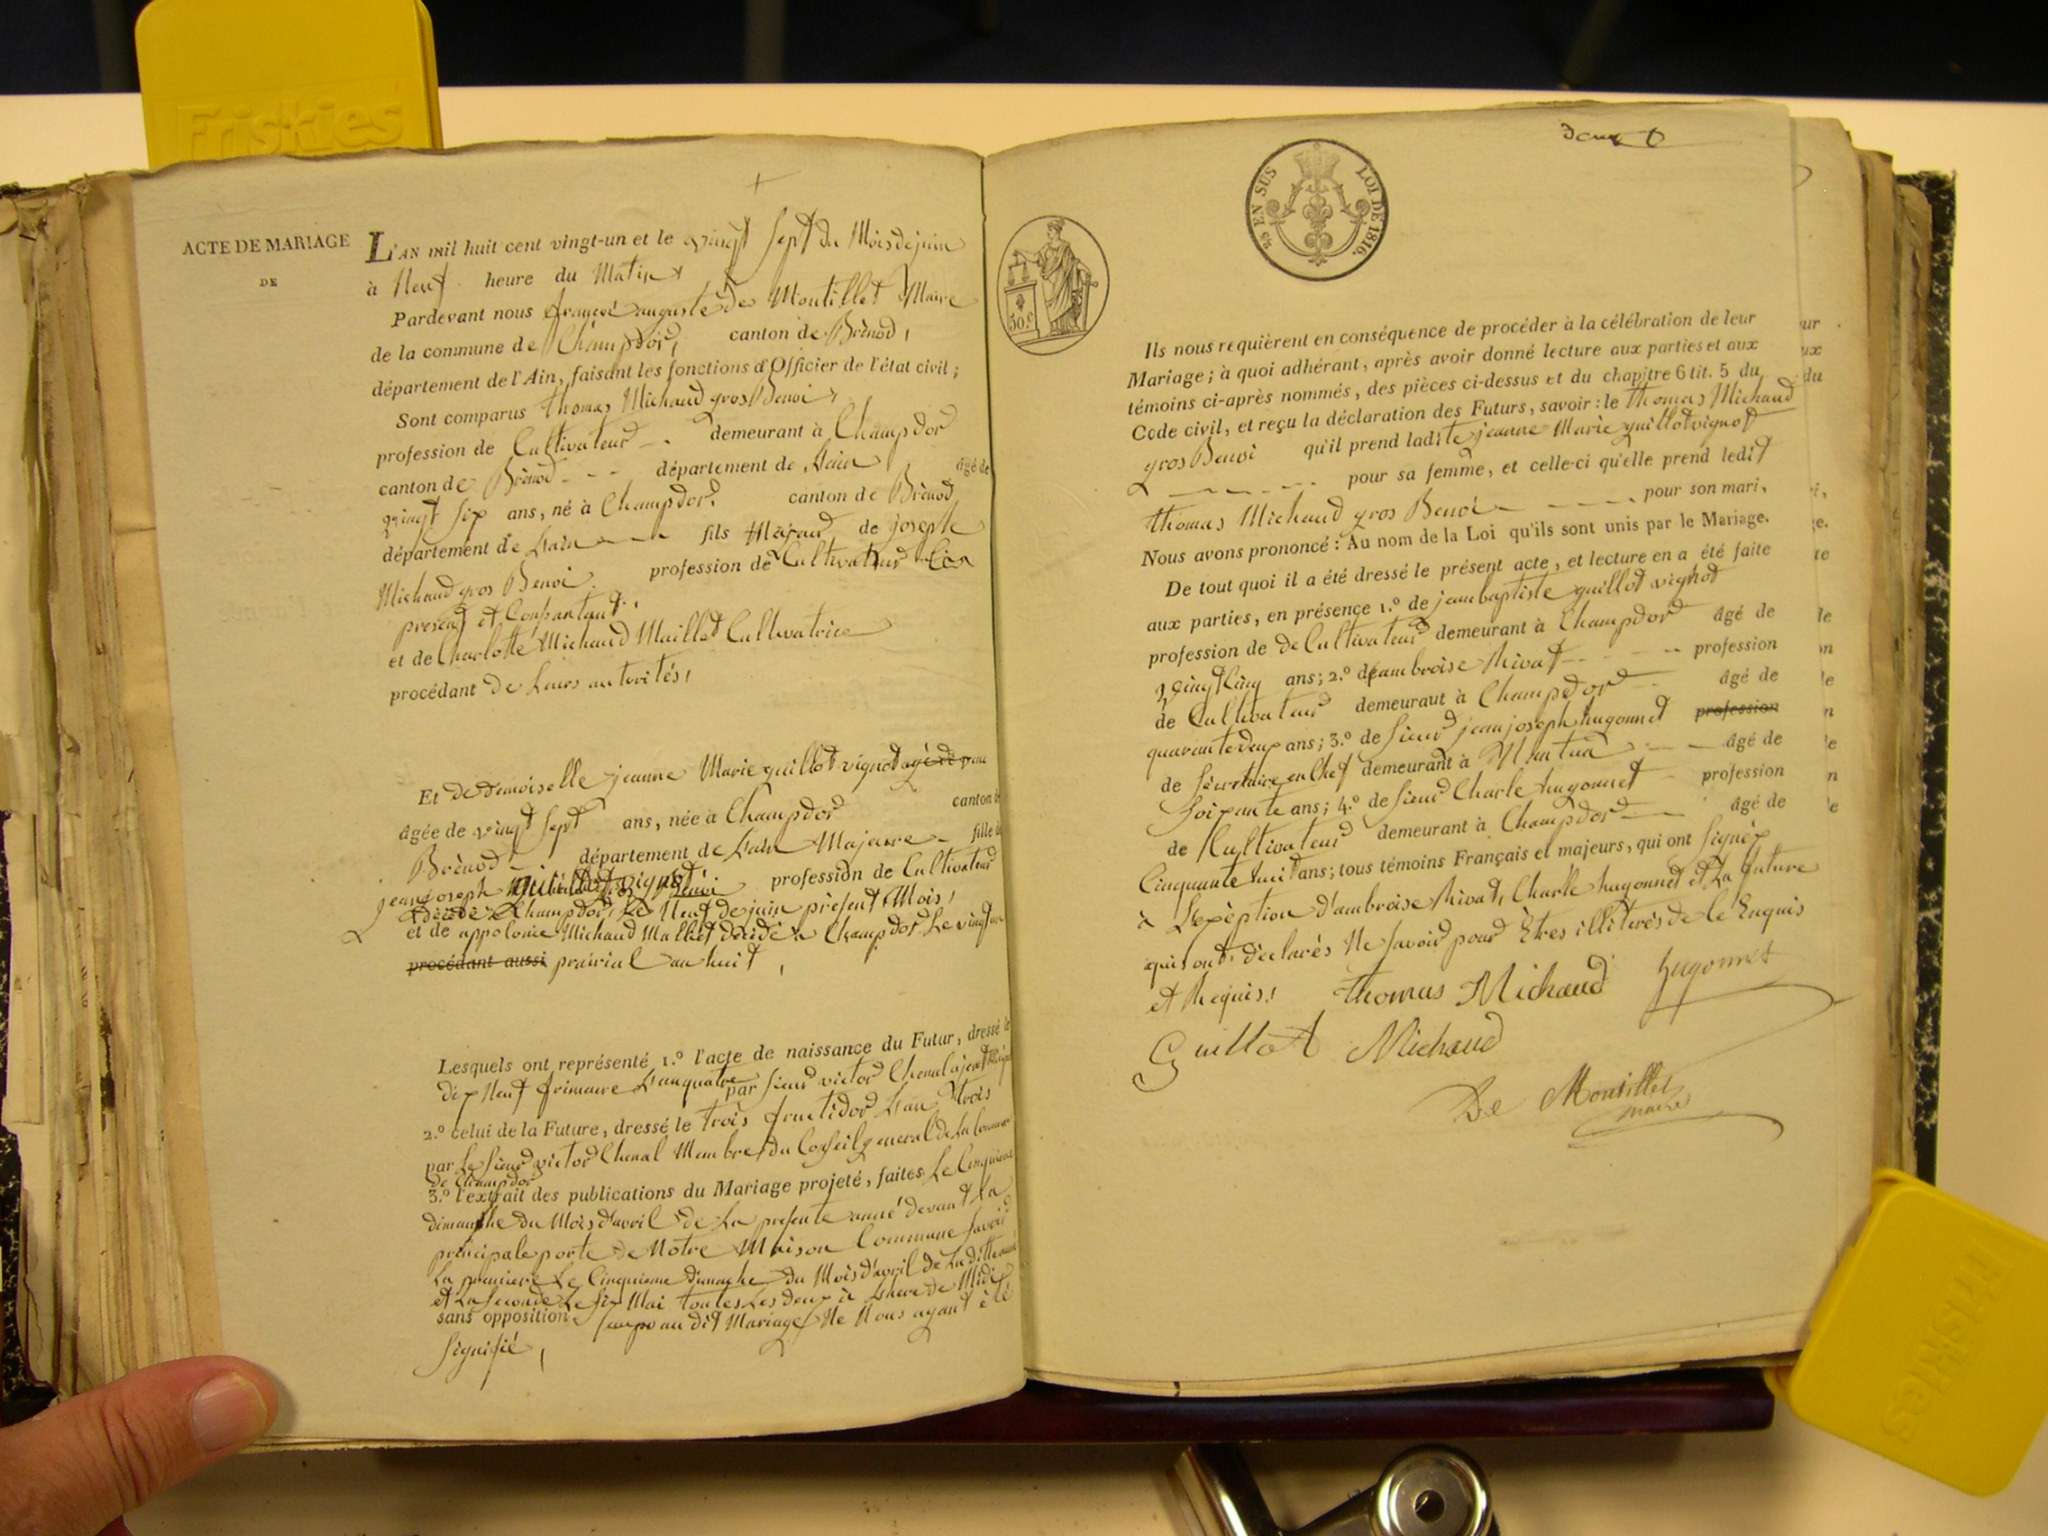 Friskies
ACTE DE MARIAGE
DE
L'AN mil huit cent vingt-un et le vingt sept du Mois de juin
à Neuf heure du Matin
Pardevant nous françois auguste de Montillet Maire
de la commune de Champdor, canton de Brènod,
département de l'Ain, faisant les fonctions d'Officier de l'état civil;
Sont comparus thomas Michaud gros Benoi
profession de Cultivateur demeurant à Champdor
canton de Brènod département de Lain âgé de
vingt six ans, né à Champdor canton de Brènod
département de Lain fils Majeur de joseph
Michaud gros Benoi profession de Cultivateur
present et Consentant
et de Charlotte Michaud Maillet Cultivatrice
procédant de Leurs autorités,
Et de demoiselle jeanne Marie guillot vignot
âgée de vingt sept ans, née à Champdor canton de
Brènod département de Lain Majeure fille de
jean joseph guillot vignot profession de Cultivateur
Champdor, Le Neuf de juin présent Mois,
et de appolonie Michaud Mallet décidé a Champdor Le vingt un
procédant aussi prairial an huit,
Lesquels ont représenté 1.º l'acte de naissance du Futur, dressé le
dix Neuf frimaire Lan quatre par Sieur victor Chenal
2.º celui de la Future, dressé le trois fructidor Lan trois
par Le Sieur victor Chenal Membre du Conseil general de La Commune
de Champdor
3.º l'extrait des publications du Mariage projeté, faites Le Cinquieme
dimanche du Mois d'avril de La presente anné devant La
principale porte de Notre Maison Commune Savoir
La premiere Le Cinquieme dimanche du Mois d'avril de La ditte anné
et La Seconde Le Six Mai toutes Les deux à Lheure de Midi
sans opposition au dit Mariage Ne Nous ayant été
Signifié,
¼ EN SUS
LOI DE 1816.
50 c
Ils nous requièrent en conséquence de procéder à la célébration de leur
Mariage; à quoi adhérant, après avoir donné lecture aux parties et aux
témoins ci-après nommés, des pièces ci-dessus et du chapitre 6 tit. 5 du
Code civil, et reçu la déclaration des Futurs, savoir: le thomas Michaud
gros Benoi qu'il prend ladite jeanne Marie guillot vignot
pour sa femme, et celle-ci qu'elle prend ledit
thomas Michaud gros Benoi pour son mari,
Nous avons prononcé: Au nom de la Loi qu'ils sont unis par le Mariage.
De tout quoi il a été dressé le présent acte, et lecture en a été faite
aux parties, en présence 1.º de jean baptiste guillot vignot
profession de de Cultivateur demeurant à Champdor âgé de
vingt Cinq ans; 2.º d'ambroise Nivat profession
de Cultivateur demeuraut à Champdor âgé de
quarante deux ans; 3.º de Sieur jean joseph hugonnet profession
de Secretaire en Chef demeurant à Nantua âgé de
Soixante ans; 4.º de Sieur Charle hugonnet profession
de Cultivateur demeurant à Champdor âgé de
Cinquante huit ans; tous témoins Français et majeurs, qui ont Signés
à L'exèption d'ambroise Nivat, Charle hugonnet et La future
qui ont déclarés Ne Savoir pour Êtres illitérés de Ce Enquis
et Requis, Thomas Michaud hugonnet
Guillot Michaud
De Montillet
maire
Friskies